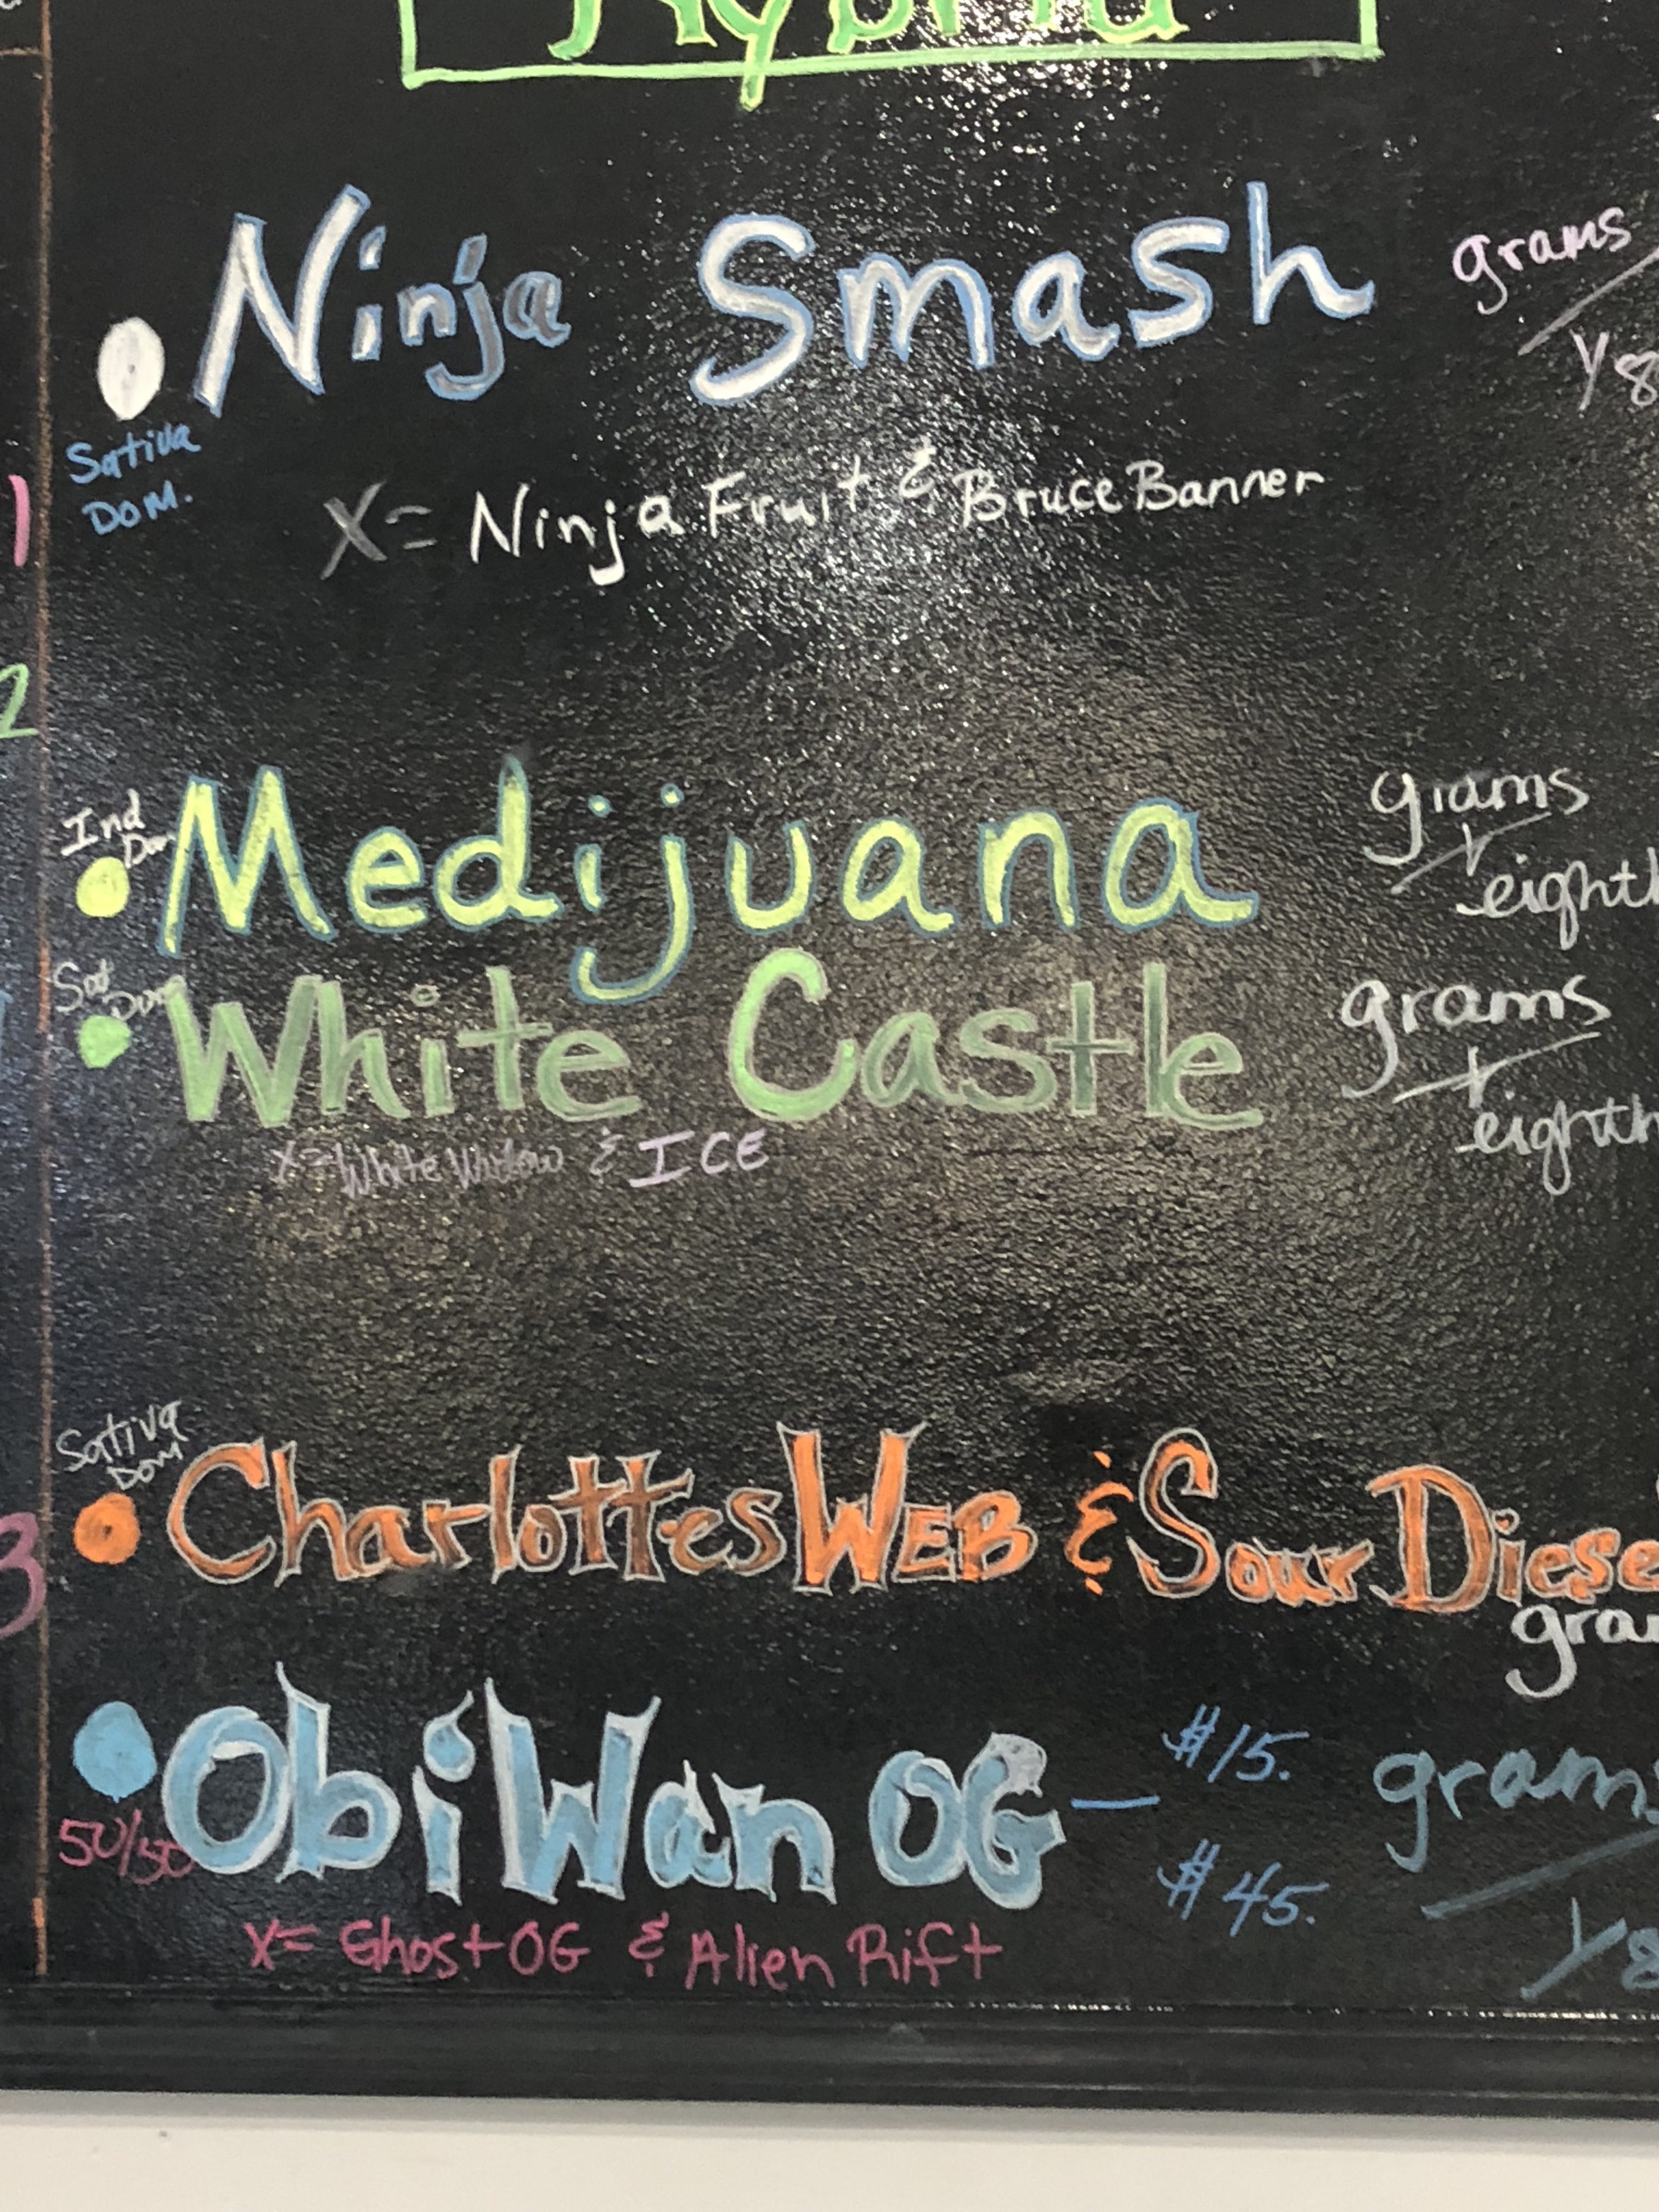 Hybrid
Ninja Smash
grams
Y8
Sativa
DOM.
X= Ninja Fruit & Bruce Banner
1
2
Ind
Dom
Medijuana
grams
+
eighth
Sat
Dom
White Castle
grams
+
eighth
X= White Widow & ICE
Sativa
DOM
Charlottes WEB & Sour Diese
gra
3
Obi Wan OG — $15.
grams
$45.
Y8
50/50
X= Ghost OG & Alien Rift